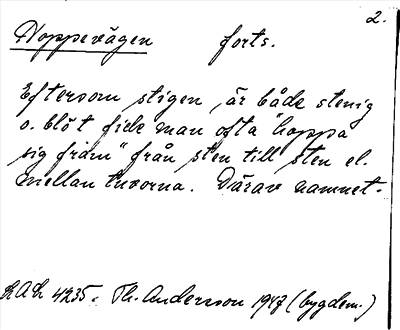 2.
Hoppevägen forts.
Eftersom stigen är både stenig
o. blöt fick man ofta "hoppa
sig fram" från sten till sten el.
mellan tuvorna. Därav namnet.
4235. Th. Andersson 1947 (bygdem.)